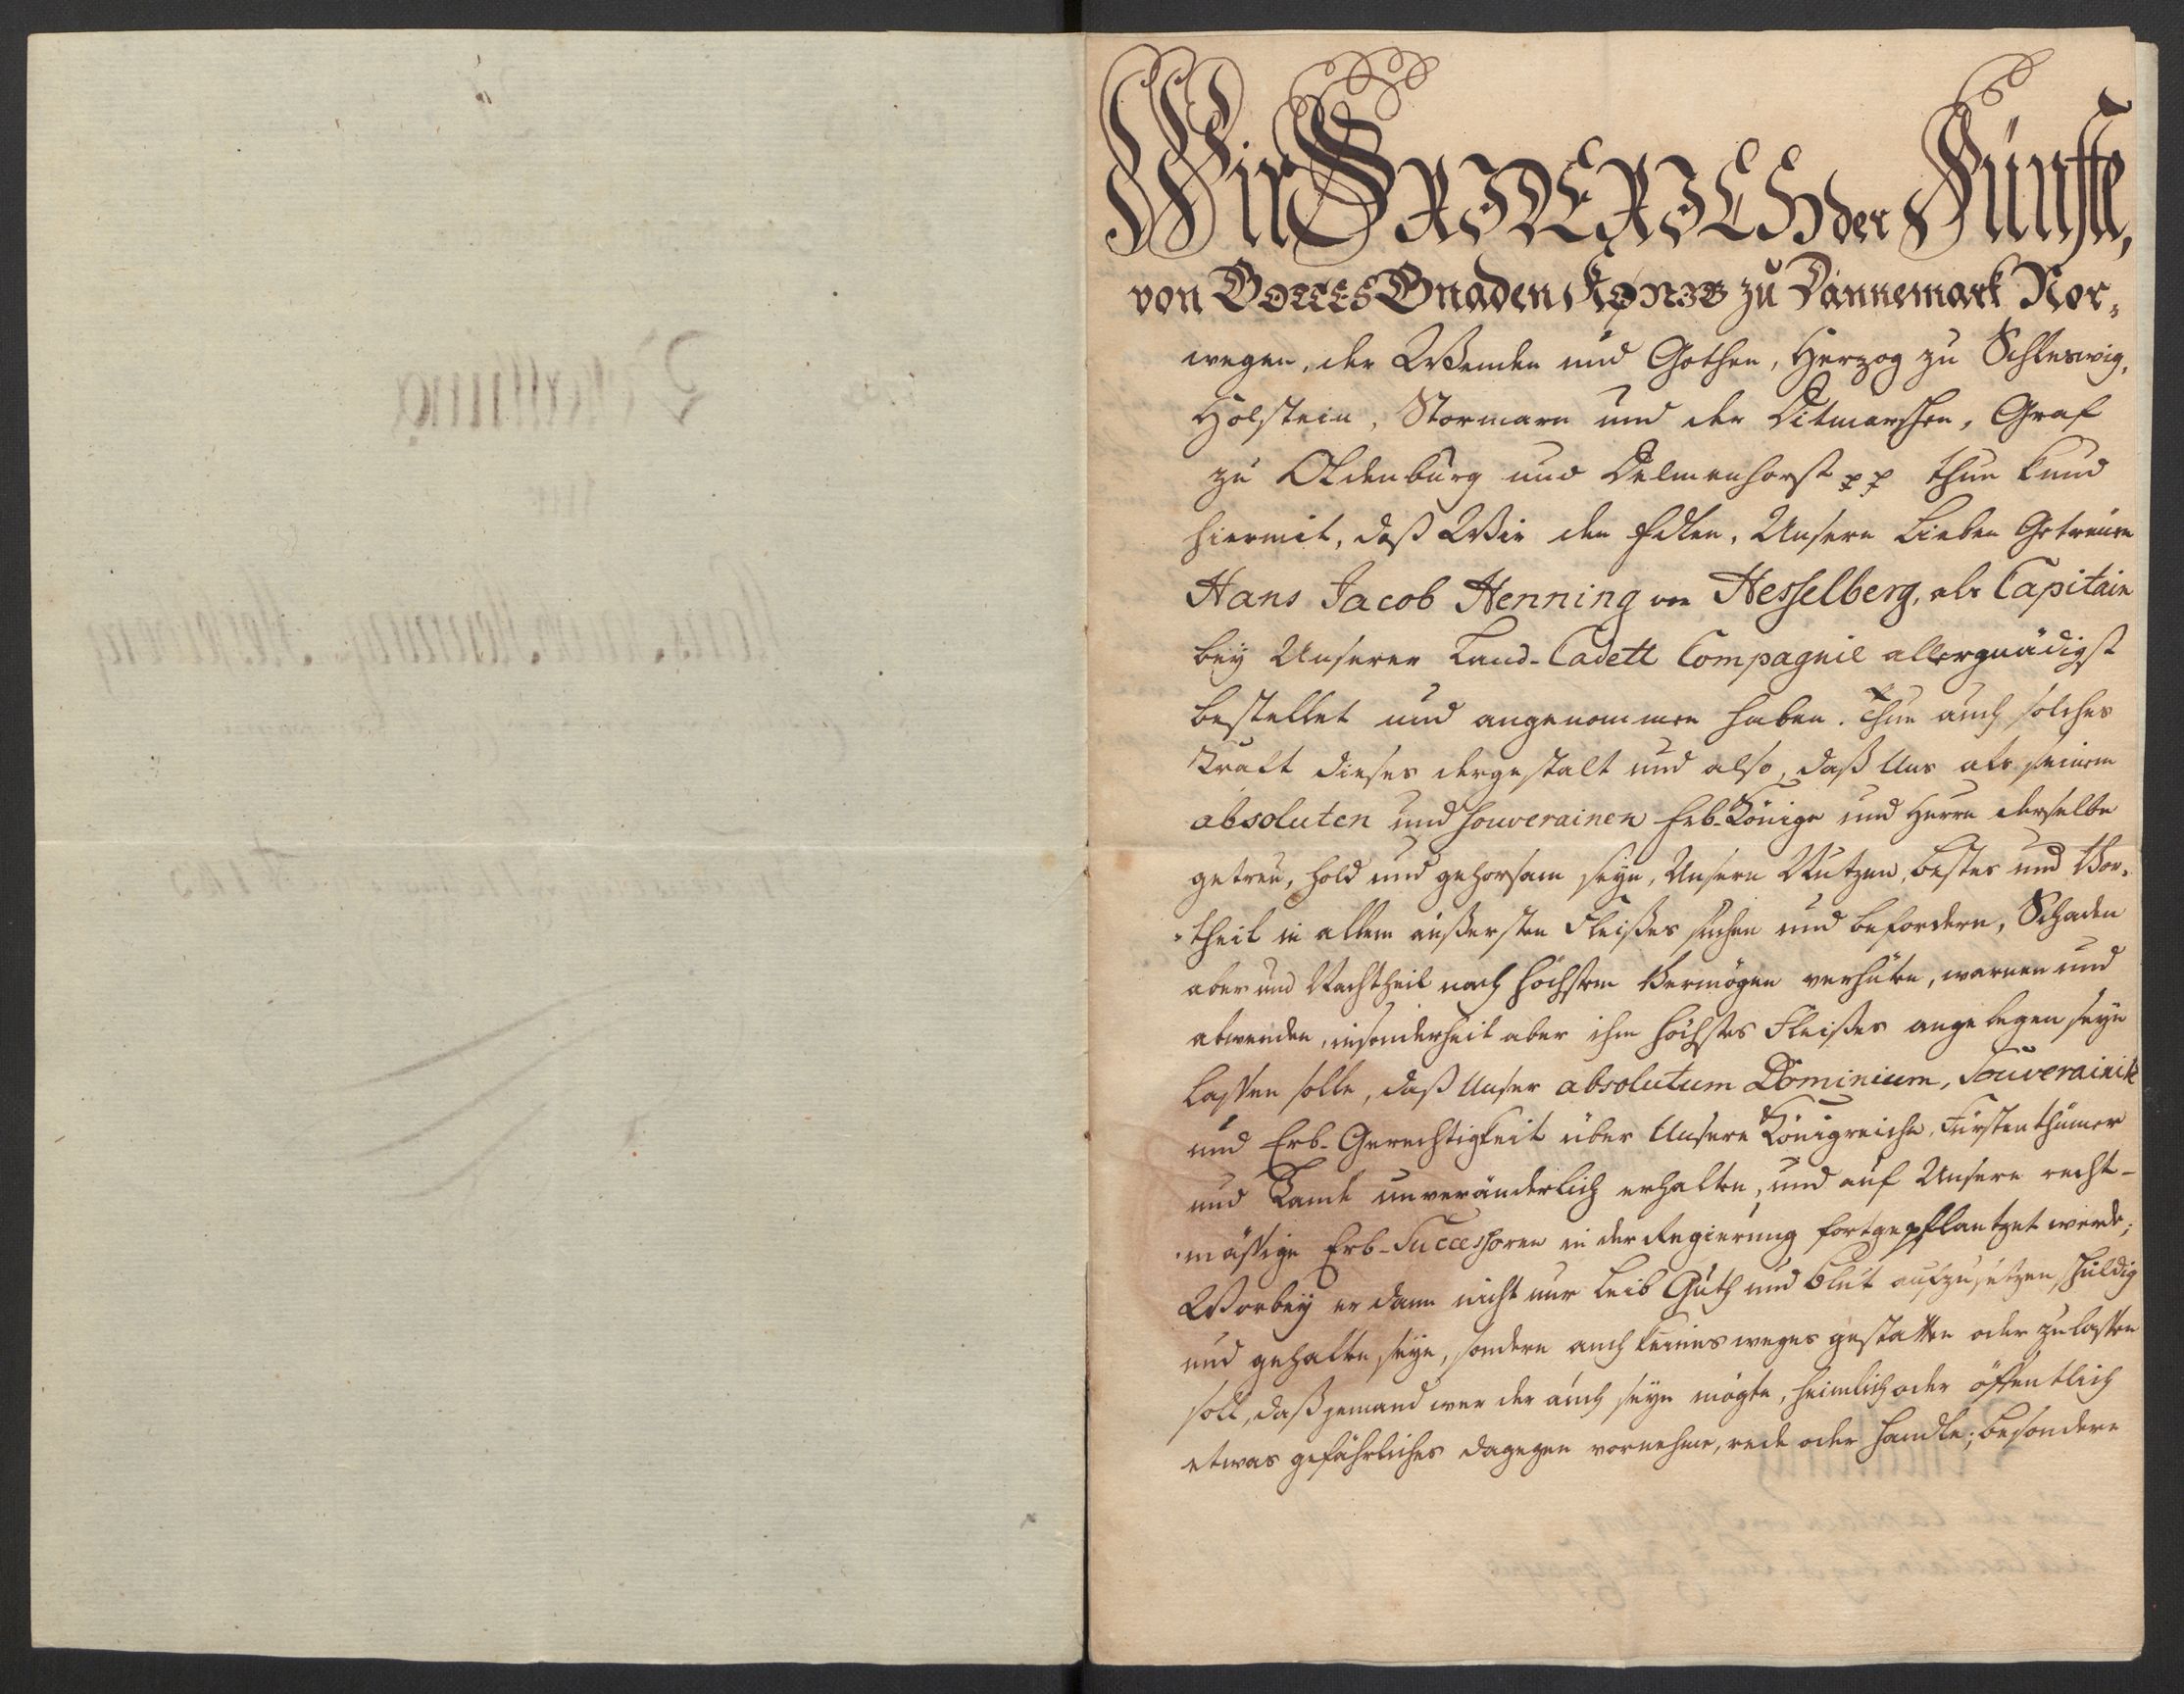 Wir FRIDERICH der Fünffte,
von GOTTES Gnaden KØNIG zu Dännemark Nor-
wegen, der Wenden und Gothen, Hertzog zu Schleswig,
Holstein, Stormarn und der Ditmarschen, Graf
zu Oldenburg und Delmenhorst pp thun kund
hiermit, daß Wir den Edlen, Unsern Lieben Getreuen
Hans Jacob Henning von Hesselberg, als Capitain
bey Unserer Land-Cadett Compagnie allergnädigst
bestellet und angenommen haben. Thun auch solches
Kraft dieses dergestalt und also, daß Uns als seinem
absoluten und souverainen Erb-Könige und Herrn derselbe
getreu, hold und gehorsam seyn, Unsern Nutzen, Bestes und Vor-
-theil in allem äußersten Fleißes suchen und befordern, Schaden
aber und Nachtheil nach höchstem Vermögen verhüten, warnen und
abwenden, insonderheit aber ihm höchstes Fleißes angelegen seyn
lassen solle, daß Unser absolutum Dominium, Souverainité
und Erb-Gerechtigkeit über Unsere Königreiche, Fürstenthümer
und Lande unveränderlich erhalten, und auf Unsere recht-
-mässige Erb-Successoren in der Regierung fortgepflantzet werde;
Worbey er dann nicht nur Leib Guth und Blut aufzusetzen schuldig
und gehalten seyn, sondern auch keinesweges gestatten oder zulassen
soll, daß jemand wer der auch seyn mögte, heimlich oder öffentlich
etwas gefährliches dagegen vornehme, rede oder handle; besondern